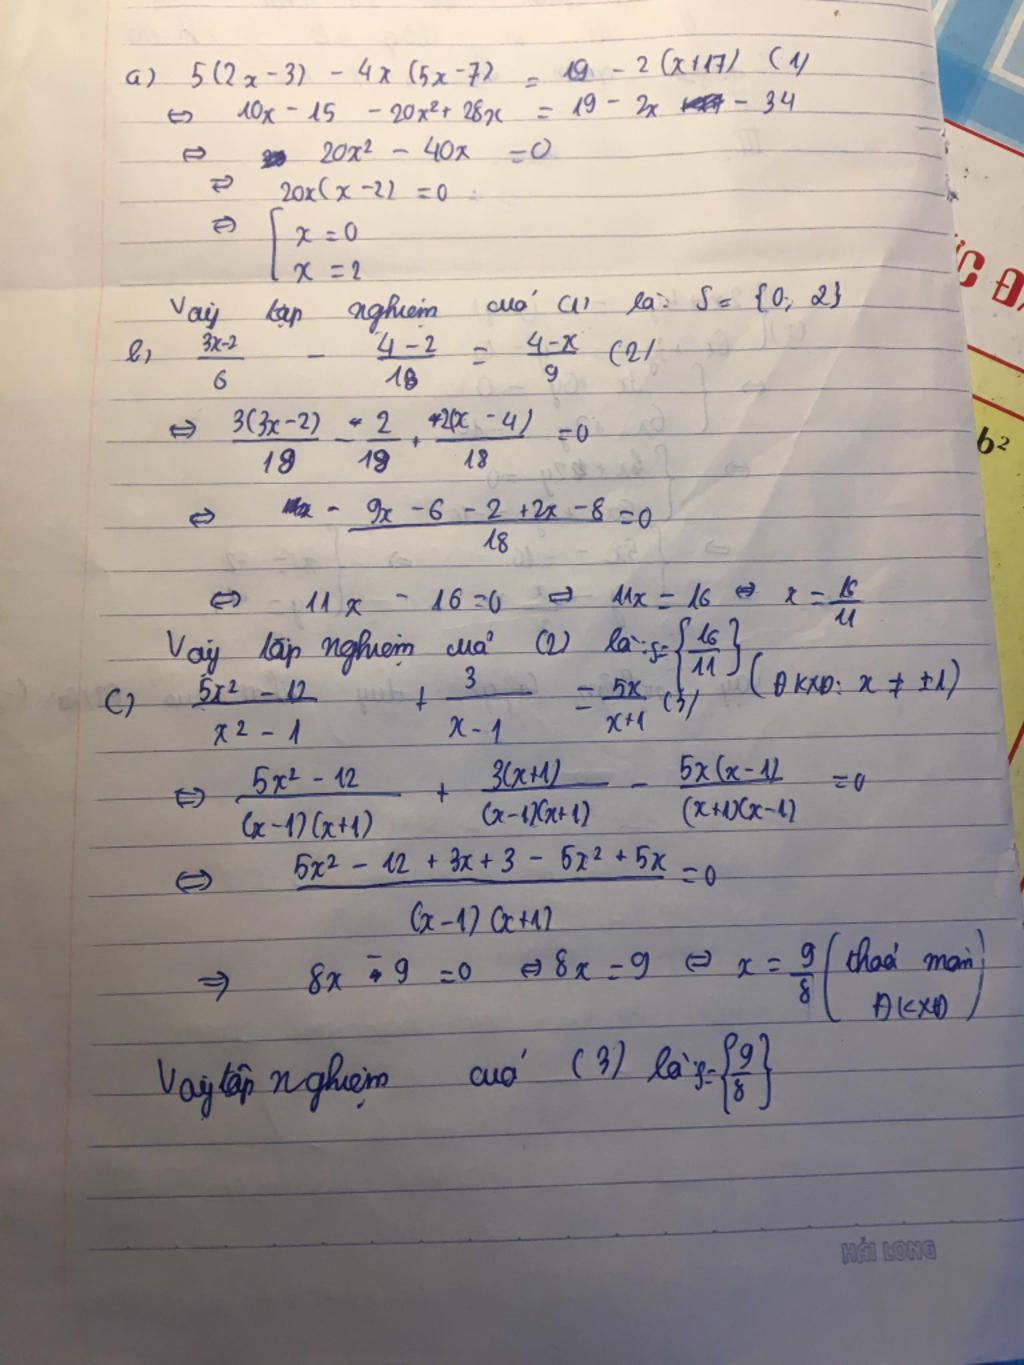 a) 5(2x-3) - 4x(5x-7) = 19 - 2(x+17) (1)
⇔ 10x - 15 - 20x² + 28x = 19 - 2x - 34
⇔ 20x² - 40x = 0
⇔ 20x(x-2) = 0
⇔ [ x = 0
x = 2
Vậy tập nghiệm của (1) là: S = {0; 2}
b) \frac{3x-2}{6} - \frac{4-2}{18} = \frac{4-x}{9} (2)
⇔ \frac{3(3x-2)}{18} - \frac{2}{18} + \frac{2(x-4)}{18} = 0
⇔ \frac{9x - 6 - 2 + 2x - 8}{18} = 0
⇔ 11x - 16 = 0 ⇔ 11x = 16 ⇔ x = \frac{16}{11}
Vậy tập nghiệm của (2) là: S = {\frac{16}{11}}
c) \frac{5x² - 12}{x² - 1} + \frac{3}{x-1} = \frac{5x}{x+1} (3) (ĐKXĐ: x ≠ ±1)
⇔ \frac{5x² - 12}{(x-1)(x+1)} + \frac{3(x+1)}{(x-1)(x+1)} - \frac{5x(x-1)}{(x+1)(x-1)} = 0
⇔ \frac{5x² - 12 + 3x + 3 - 5x² + 5x}{(x-1)(x+1)} = 0
⇒ 8x - 9 = 0 ⇔ 8x = 9 ⇔ x = \frac{9}{8} (thoả mãn ĐKXĐ)
Vậy tập nghiệm của (3) là S = {\frac{9}{8}}
HẢI LONG
b²